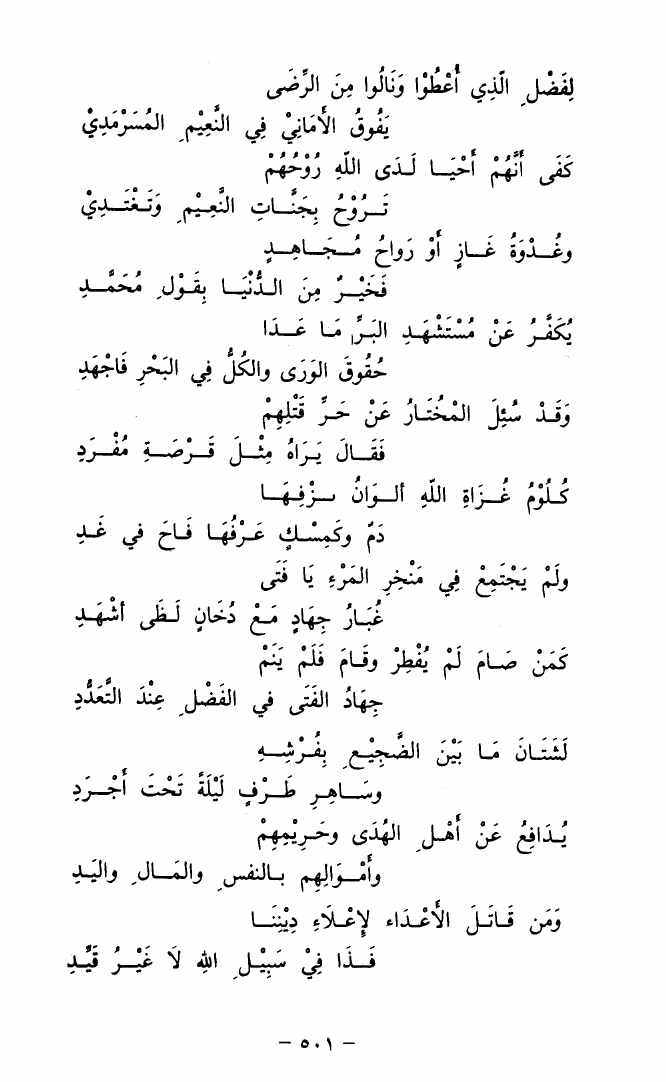 لِفَضْلِ الَّذِي أُعْطُوْا وَنَالُوا مِنَ الرِّضَى
يَفُوقُ الأَمَانِيْ فِي النَّعِيْمِ المُسَرْمَدِيْ
كَفَى أَنَّهُمْ أَحْيَا لَدَى اللَّهِ رُوْحُهُمْ
تَرُوْحُ بِجَنَّاتِ النَّعِيْمِ وَتَغْتَدِيْ
وغُدْوَةُ غَازٍ أَوْ رَواحُ مُجَاهِدٍ
فَخَيْرٌ مِنَ الدُّنْيَا بِقَوْلِ مُحَمَّدِ
يُكَفَّرُ عَنْ مُسْتَشْهَدِ البَرِّ مَا عَدَا
حُقُوقَ الوَرَى والكُلُّ فِي البَحْرِ فَاجْهَدِ
وَقَدْ سُئِلَ المُخْتَارُ عَنْ حَرِّ قَتْلِهِمْ
فَقَالَ يَرَاهُ مِثْلَ قَرْصَةِ مُفْرَدِ
كُلُوْمُ غُزَاةِ اللَّهِ ألوَانُ نزْفِهَا
دَمٌ وكَمِسْكٍ عَرْفُهَا فَاحَ في غَدِ
ولَمْ يَجْتَمِعْ فِي مَنْخِرِ المَرْءِ يَا فَتَى
غُبَارُ جِهَادٍ مَعْ دُخَانِ لَظَى أشْهَدِ
كَمَنْ صَامَ لَمْ يُفْطِرْ وقَامَ فَلَمْ يَنَمْ
جِهَادُ الفَتَى في الفَضْلِ عِنْدَ التَّعَدُّدِ
لَشَتَانَ مَا بَيْنَ الضَّجِيْعِ بِفُرْشِهِ
وسَاهِرِ طَرْفٍ لَيْلَةً تَحْتَ أَجْرَدِ
يُدَافِعُ عَنْ أَهْلِ الهُدَى وحَرِيْمِهِمْ
وأَمْوَالِهِم بالنفسِ والمَالِ واليَدِ
وَمَن قَاتَلَ الأَعْدَاء لإِعْلَاءِ دِيْنِنَا
فَذَا فِيْ سَبِيْلِ اللهِ لَا غَيْرُ قَيِّدِ
- ٥٠١ -